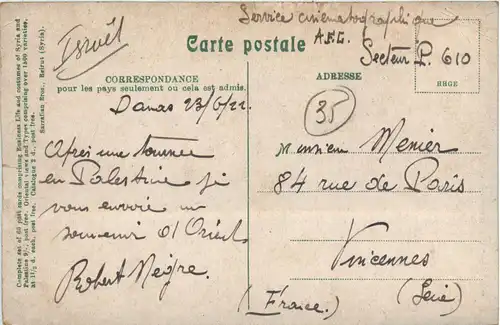 Complete set of 60 post cards comprising Business Life and costumes of Syria and
Palestine 5/. post free. Oriental views and Types comprising over 1500 varieties.
at 1 1/2 d. each, post free. Catalogue 2 d., post free.
Sarrafian Bros., Beirut (Syria).
Israël
Service cinématographique
A.F.L.
Secteur P. 610
Carte postale
CORRESPONDANCE
pour les pays seulement ou cela est admis.
ADRESSE
Damas 23/6/22.
35
Après une tournée
en Palestine je
vous envoie un
souvenir d'Orient
Robert Nègre.
Monsieur Menier
84 rue de Paris
Vincennes
(France.) (Seine)